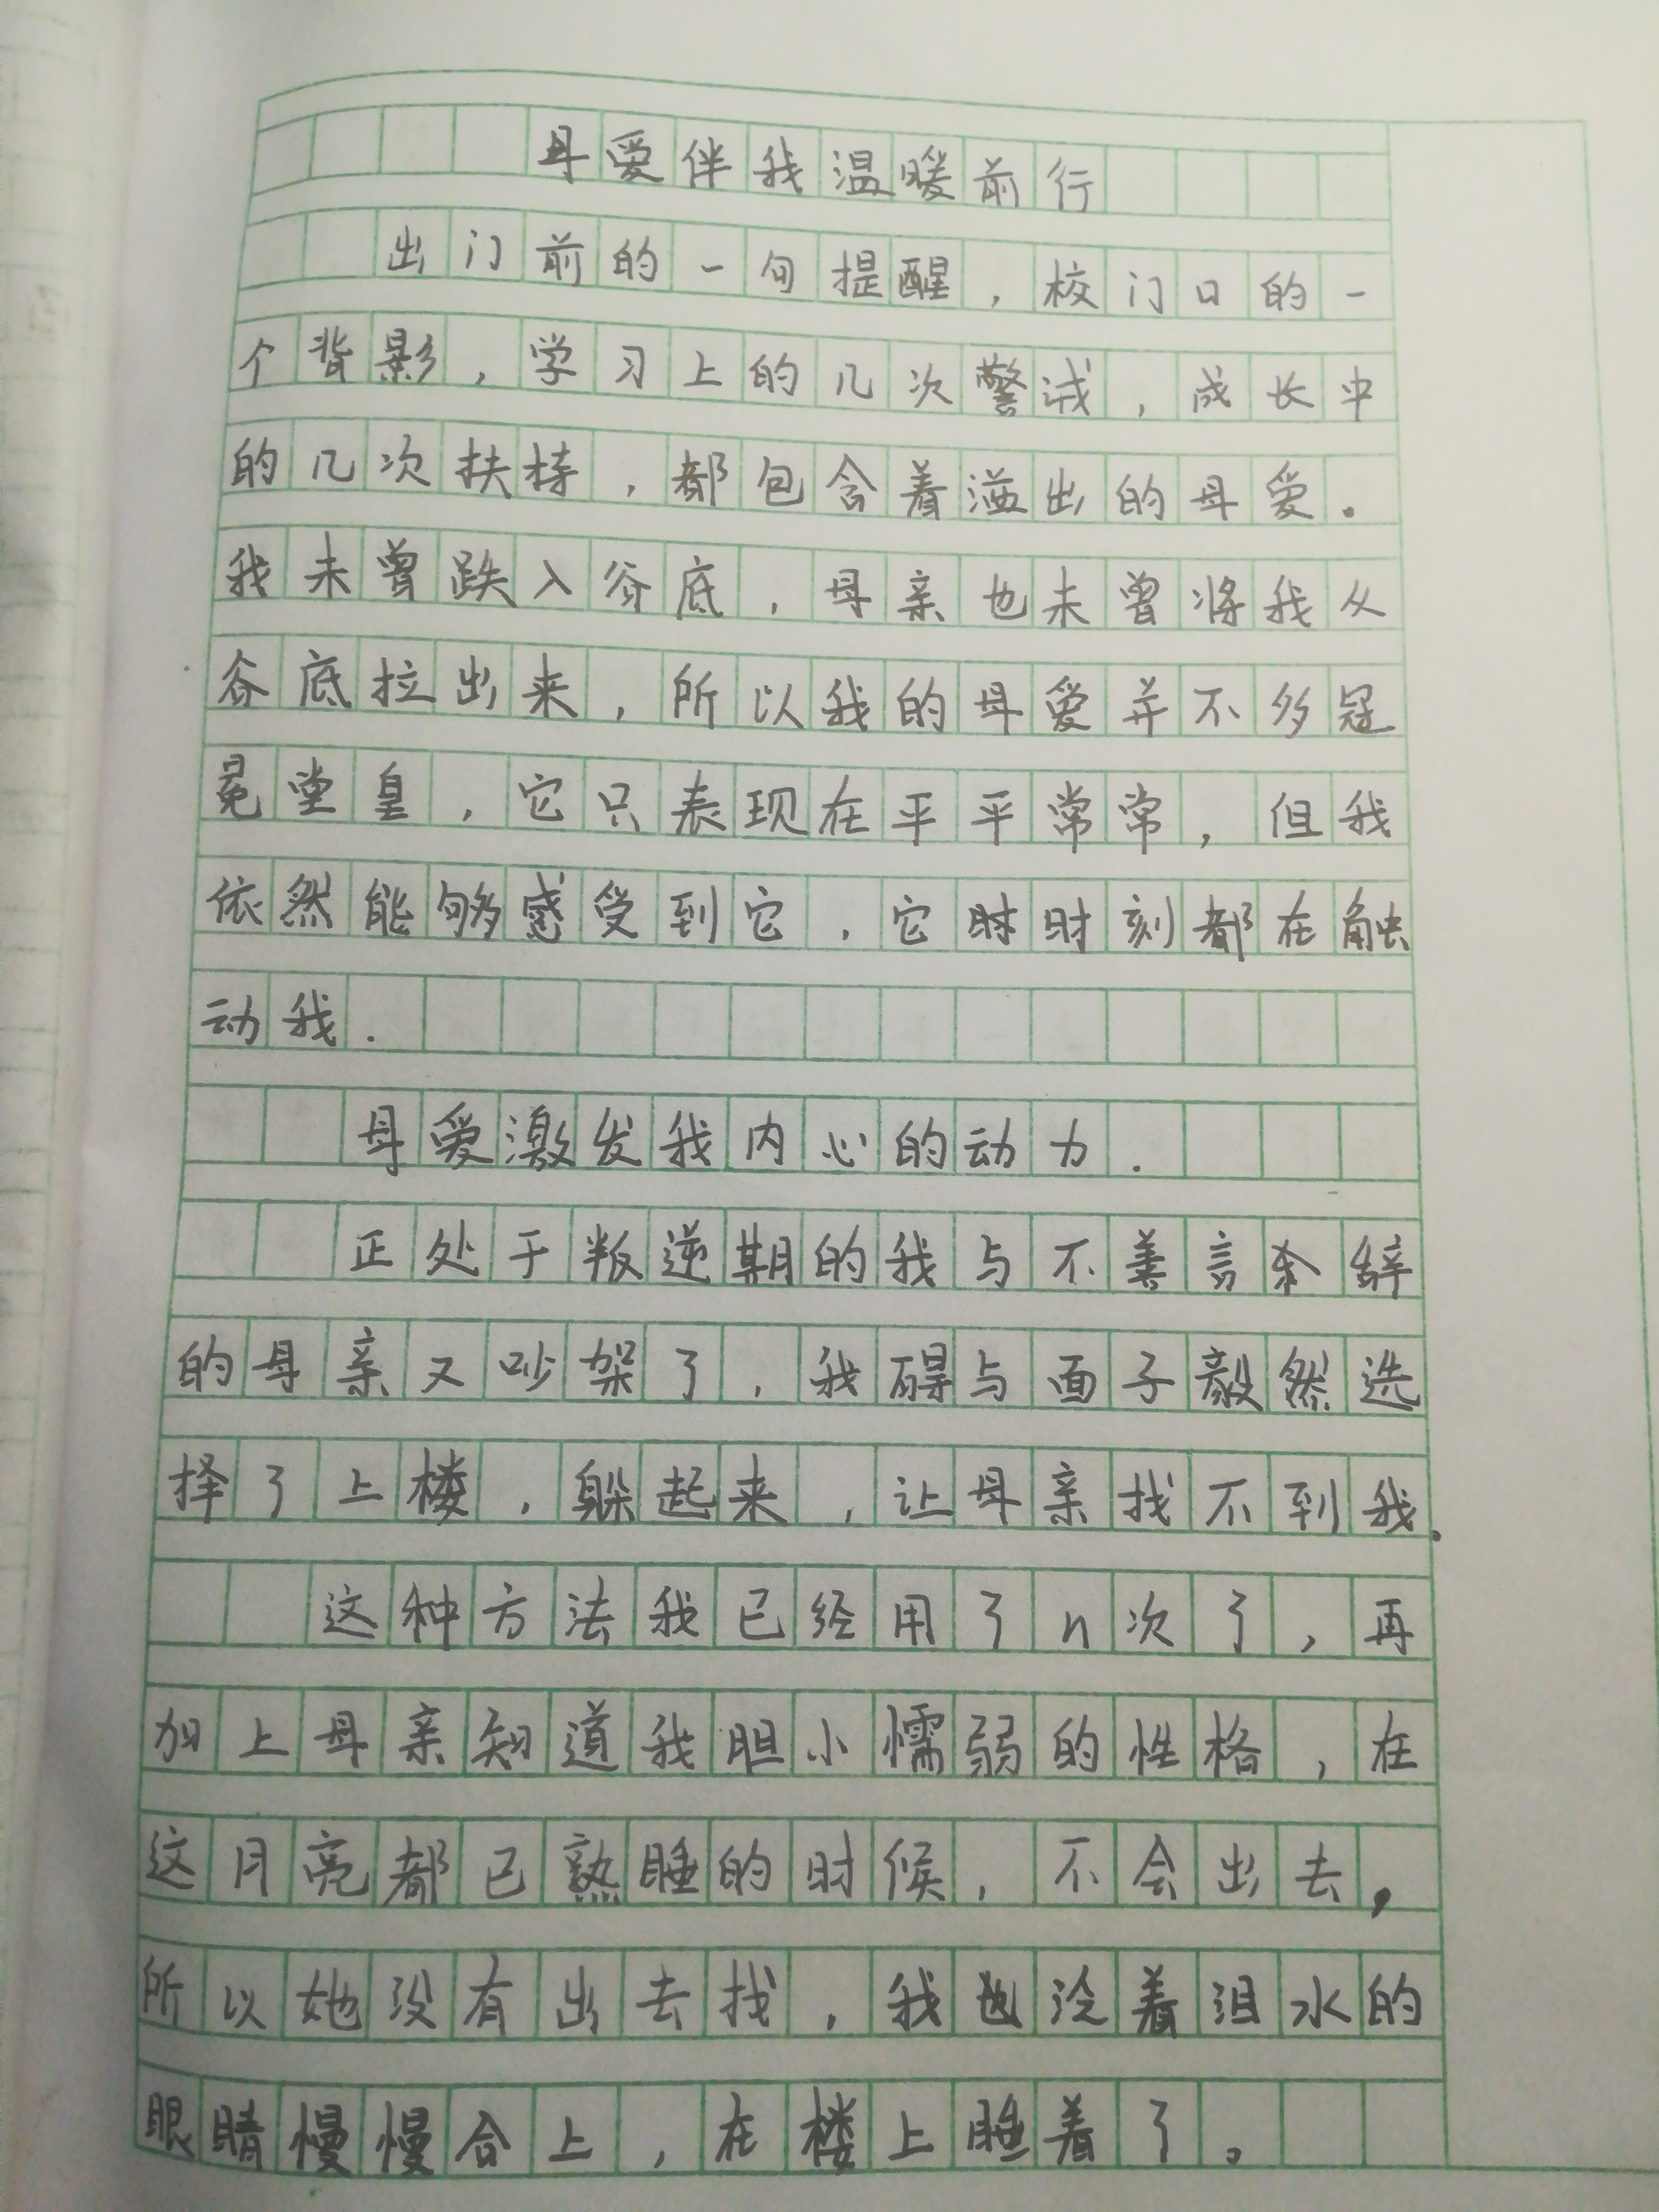 母爱伴我温暖前行
出门前的一句提醒，校门口的一
个背影，学习上的几次警诫，成长中
的几次扶持，都包含着溢出的母爱。
我未曾跌入谷底，母亲也未曾将我从
谷底拉出来，所以我的母爱并不多冠
冕堂皇，它只表现在平平常常，但我
依然能够感受到它，它时时刻都在触
动我.
母爱激发我内心的动力.
正处于叛逆期的我与不善言余辞
的母亲又吵架了，我碍与面子毅然选
择了上楼，躲起来，让母亲找不到我.
这种方法我已经用了n次了，再
加上母亲知道我胆小懦弱的性格，在
这月亮都已熟睡的时候，不会出去，
所以她没有出去找，我也泠着泪水的
眼睛慢慢合上，在楼上睡着了。